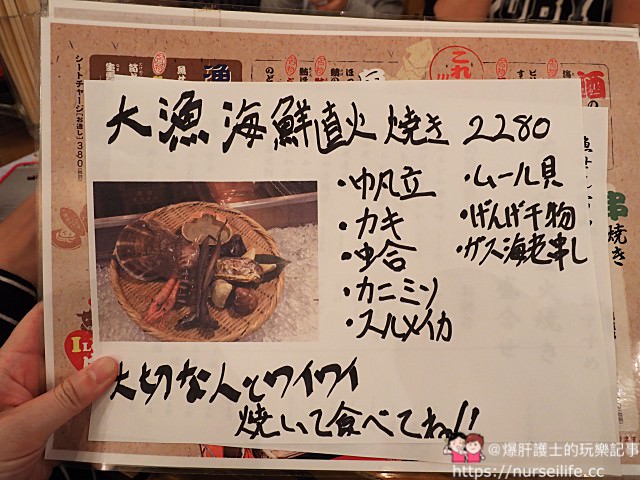 大漁海鮮直火焼き 2280
・帆立
・カキ
・蛤
・カニミソ
・スルメイカ
・ムール貝
・げんげ干物
・ガス海老串し
大切な人とワイワイ
焼いて食べてね!!
シートチャージ[お通し]380
酒の
串焼き
これ
@爆肝護士的玩樂記事
https://nurseilife.cc